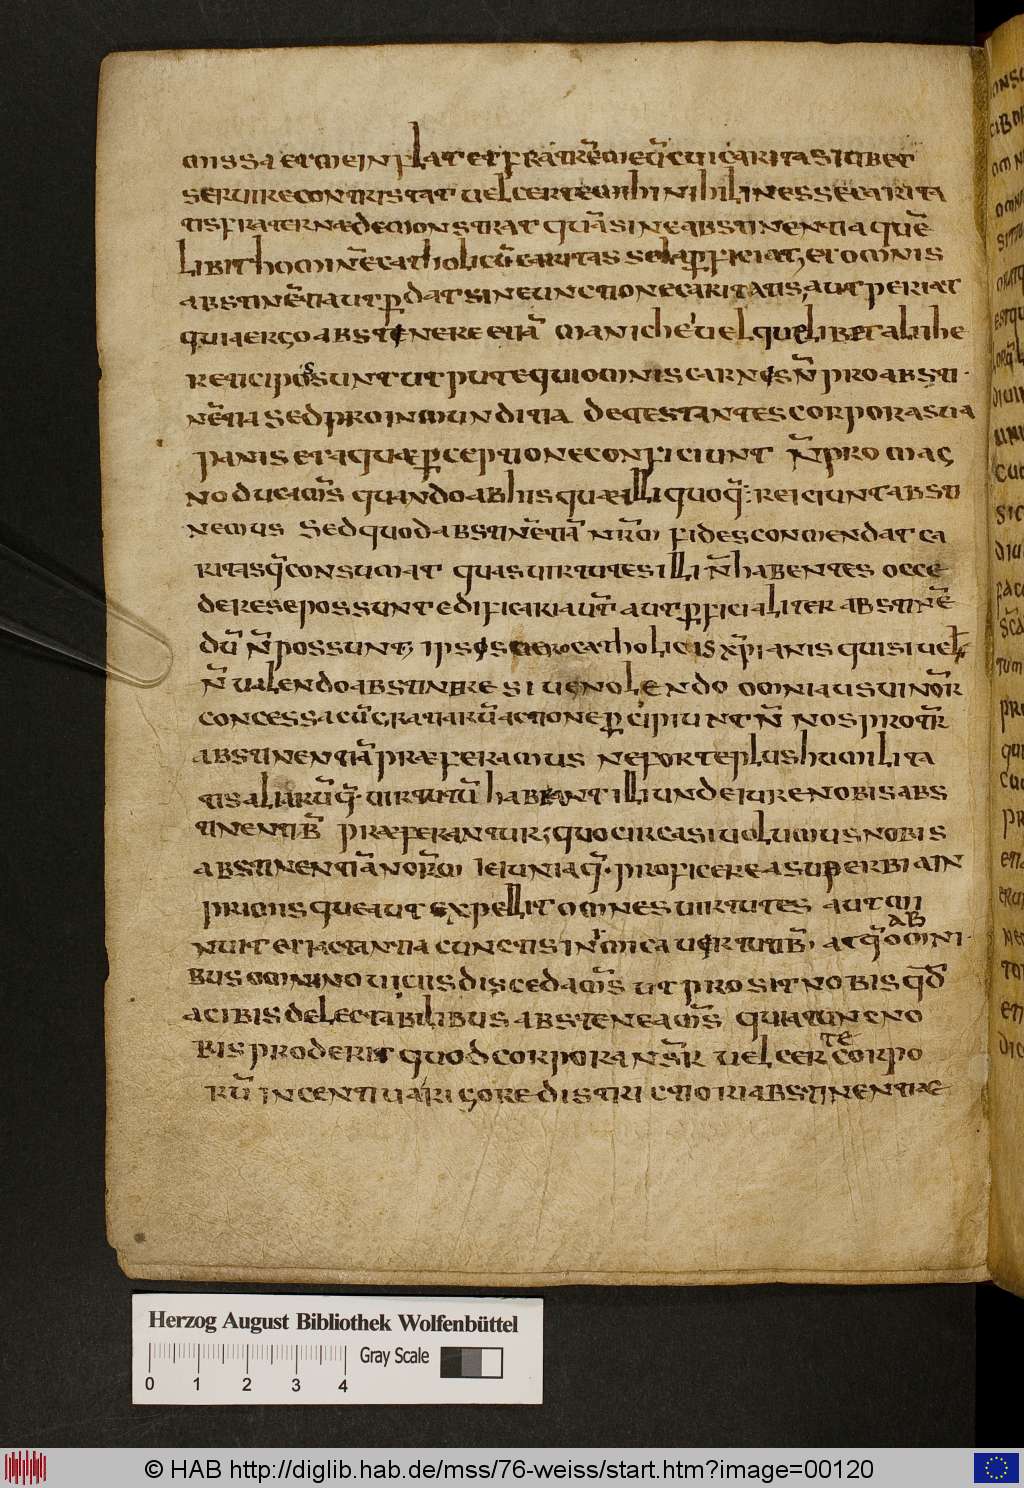 missa et me inflat et fratrē meq̄ cui caritas iubet
seruire contristat uel certe mihi nihil inesse carita
tis fraternæ demonstrat quā sine abstinentia quē
libit hominē catholicū caritas sola ꝑficiat, et omnis
abstinētia aut ꝑdat sine unctione caritatis, aut periat
qui ergo abstinere etiā manichei uel quelibet alii he
retici possunt ut pute qui omnis carnis n̄ pro absti
nētia sed pro inmunditia detestantes corpora sua
panis et aquæ ꝑceptione conficiunt n̄ pro mag
no ducam̄s quando ab his quæ illi quoq̄: reiciunt absti
nemus sed quod abstinētiā nr̄m fides conmendat ca
ritasq̄ consumat quas uirtutes illi n̄ habentes nec
de re se possunt edificari aut̄ aut ꝑficialiter abstinē
dū n̄ possunt, ipsis catholicis xp̄ianis qui siue
n̄ ualendo abstinere siue nolendo omnia usui nōr
concessa cū gratiarū actione ꝑcipiunt n̄ nos protr̄
abstinentiā præferamus ne forte plus humilita
tis aliarūq̄. uirtutū habeant illi unde iure nobis abs
tinentib̄ præferantur; quo circa si uolumus nobis
abstinentiā nor̄m ieiuniaq̄. proficere a superbia in
primis que aut expellit omnes uirtutes aut mi
nuit et iactantia cunctis inimica uirtutib̄, atq̄ ab omni
bus omnino uiciis discedam̄s ut prosit nobis qd̄
a cibis delectabilibus absteneam̄s quia tunc no
bis proderit quod corpora nsr̄ uel certe corpo
rū incentiua rigore districtiori abstinentiæ
Herzog August Bibliothek Wolfenbüttel
Gray Scale
0 1 2 3 4
© HAB http://diglib.hab.de/mss/76-weiss/start.htm?image=00120